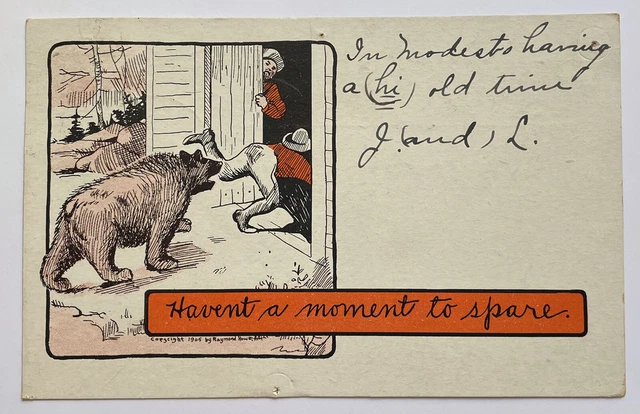 In Modesto having
a (hi) old time
J. (and) L.
Havent a moment to spare.
Copyright 1905 by Raymond